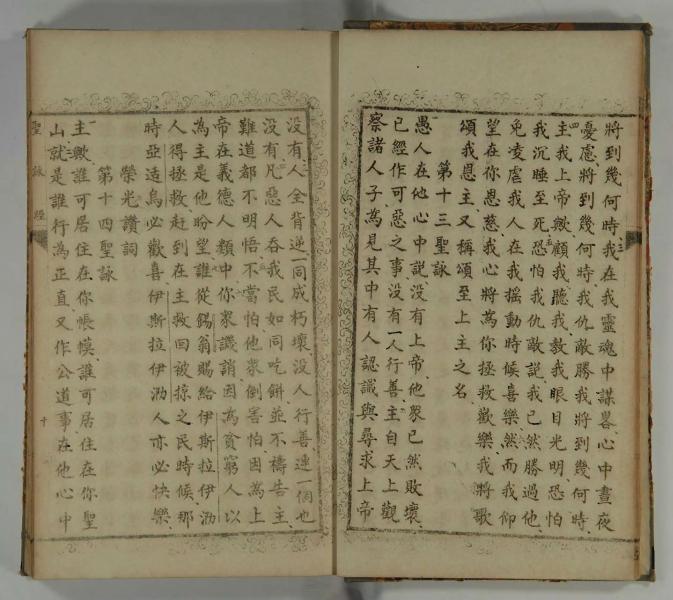 將到幾何時我在我靈魂中謀畧心中晝夜
憂慮將到幾何時我仇敵勝我將到幾何時
主我上帝歟顧我聽我教我眼目光明恐怕
我沉睡至死恐怕我仇敵説我已然勝過他
免凌虐我人在我摇動時候喜樂然而我仰
望在你恩慈我心將為你拯救歡樂我將歌
頌我恩主又稱頌至上主之名
第十三聖詠
愚人在他心中説没有上帝他衆已然敗壞
已經作可惡之事没有一人行善主自天上觀
察諸人子為見其中有人認識與尋求上帝
没有人全背逆一同成朽壞没人行善連一個也
没有凡惡人吞我民如同吃餅並不禱告主
難道都不明悟不當怕他衆倒害怕因為上
帝在義德人類中你衆譏誚因為貧窮人以
為主是他盼望誰從錫翁賜給伊斯拉伊泐
人得拯救赶到在主救回被掠之民時候那
時亞适烏必歡喜伊斯拉伊泐人亦必快樂
榮光讚詞
第十四聖詠
主歟誰可居住在你帳幙誰可居住在你聖
山就是誰行為正直又作公道事在他心中
聖詠經
十